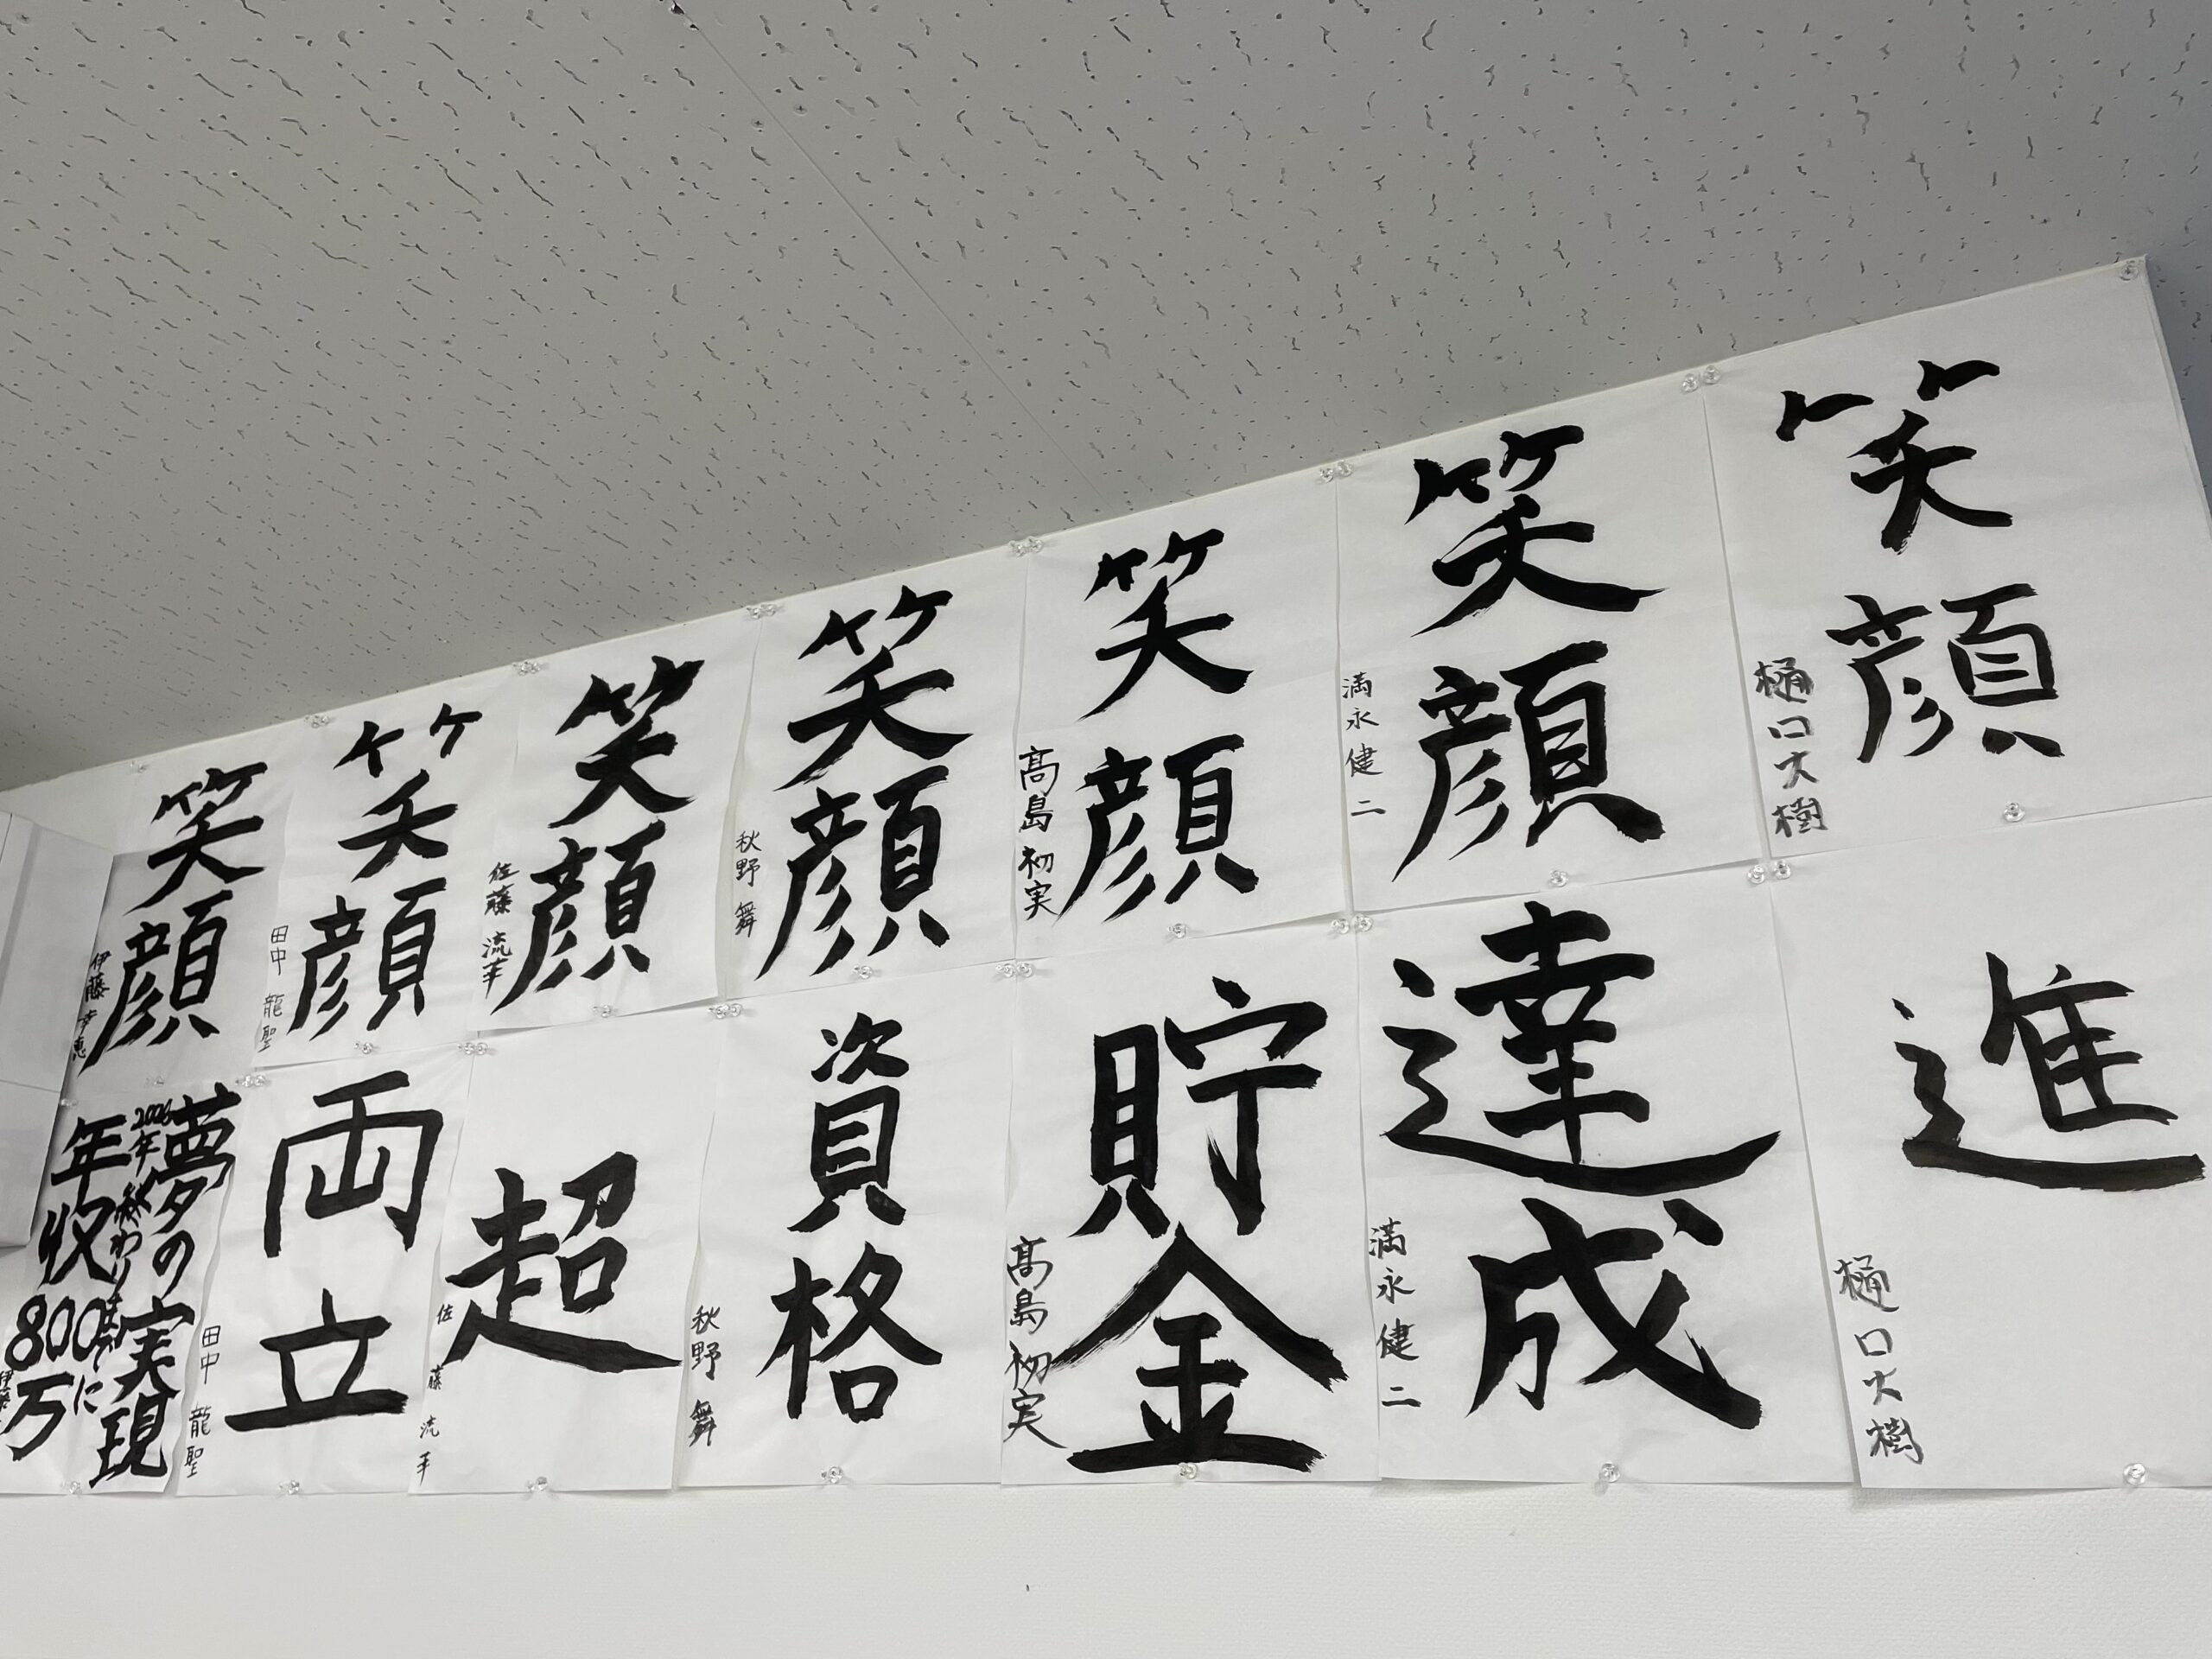 笑顔
樋口大樹
笑顔
満永健二
笑顔
高島初実
笑顔
秋野舞
笑顔
佐藤流
笑顔
田中龍聖
笑顔
伊藤幸恵
進
樋口大樹
達成
満永健二
貯金
高島初実
資格
秋野舞
超
佐藤流
両立
田中龍聖
夢の実現
2026年終わりまでに
年収800万
伊藤